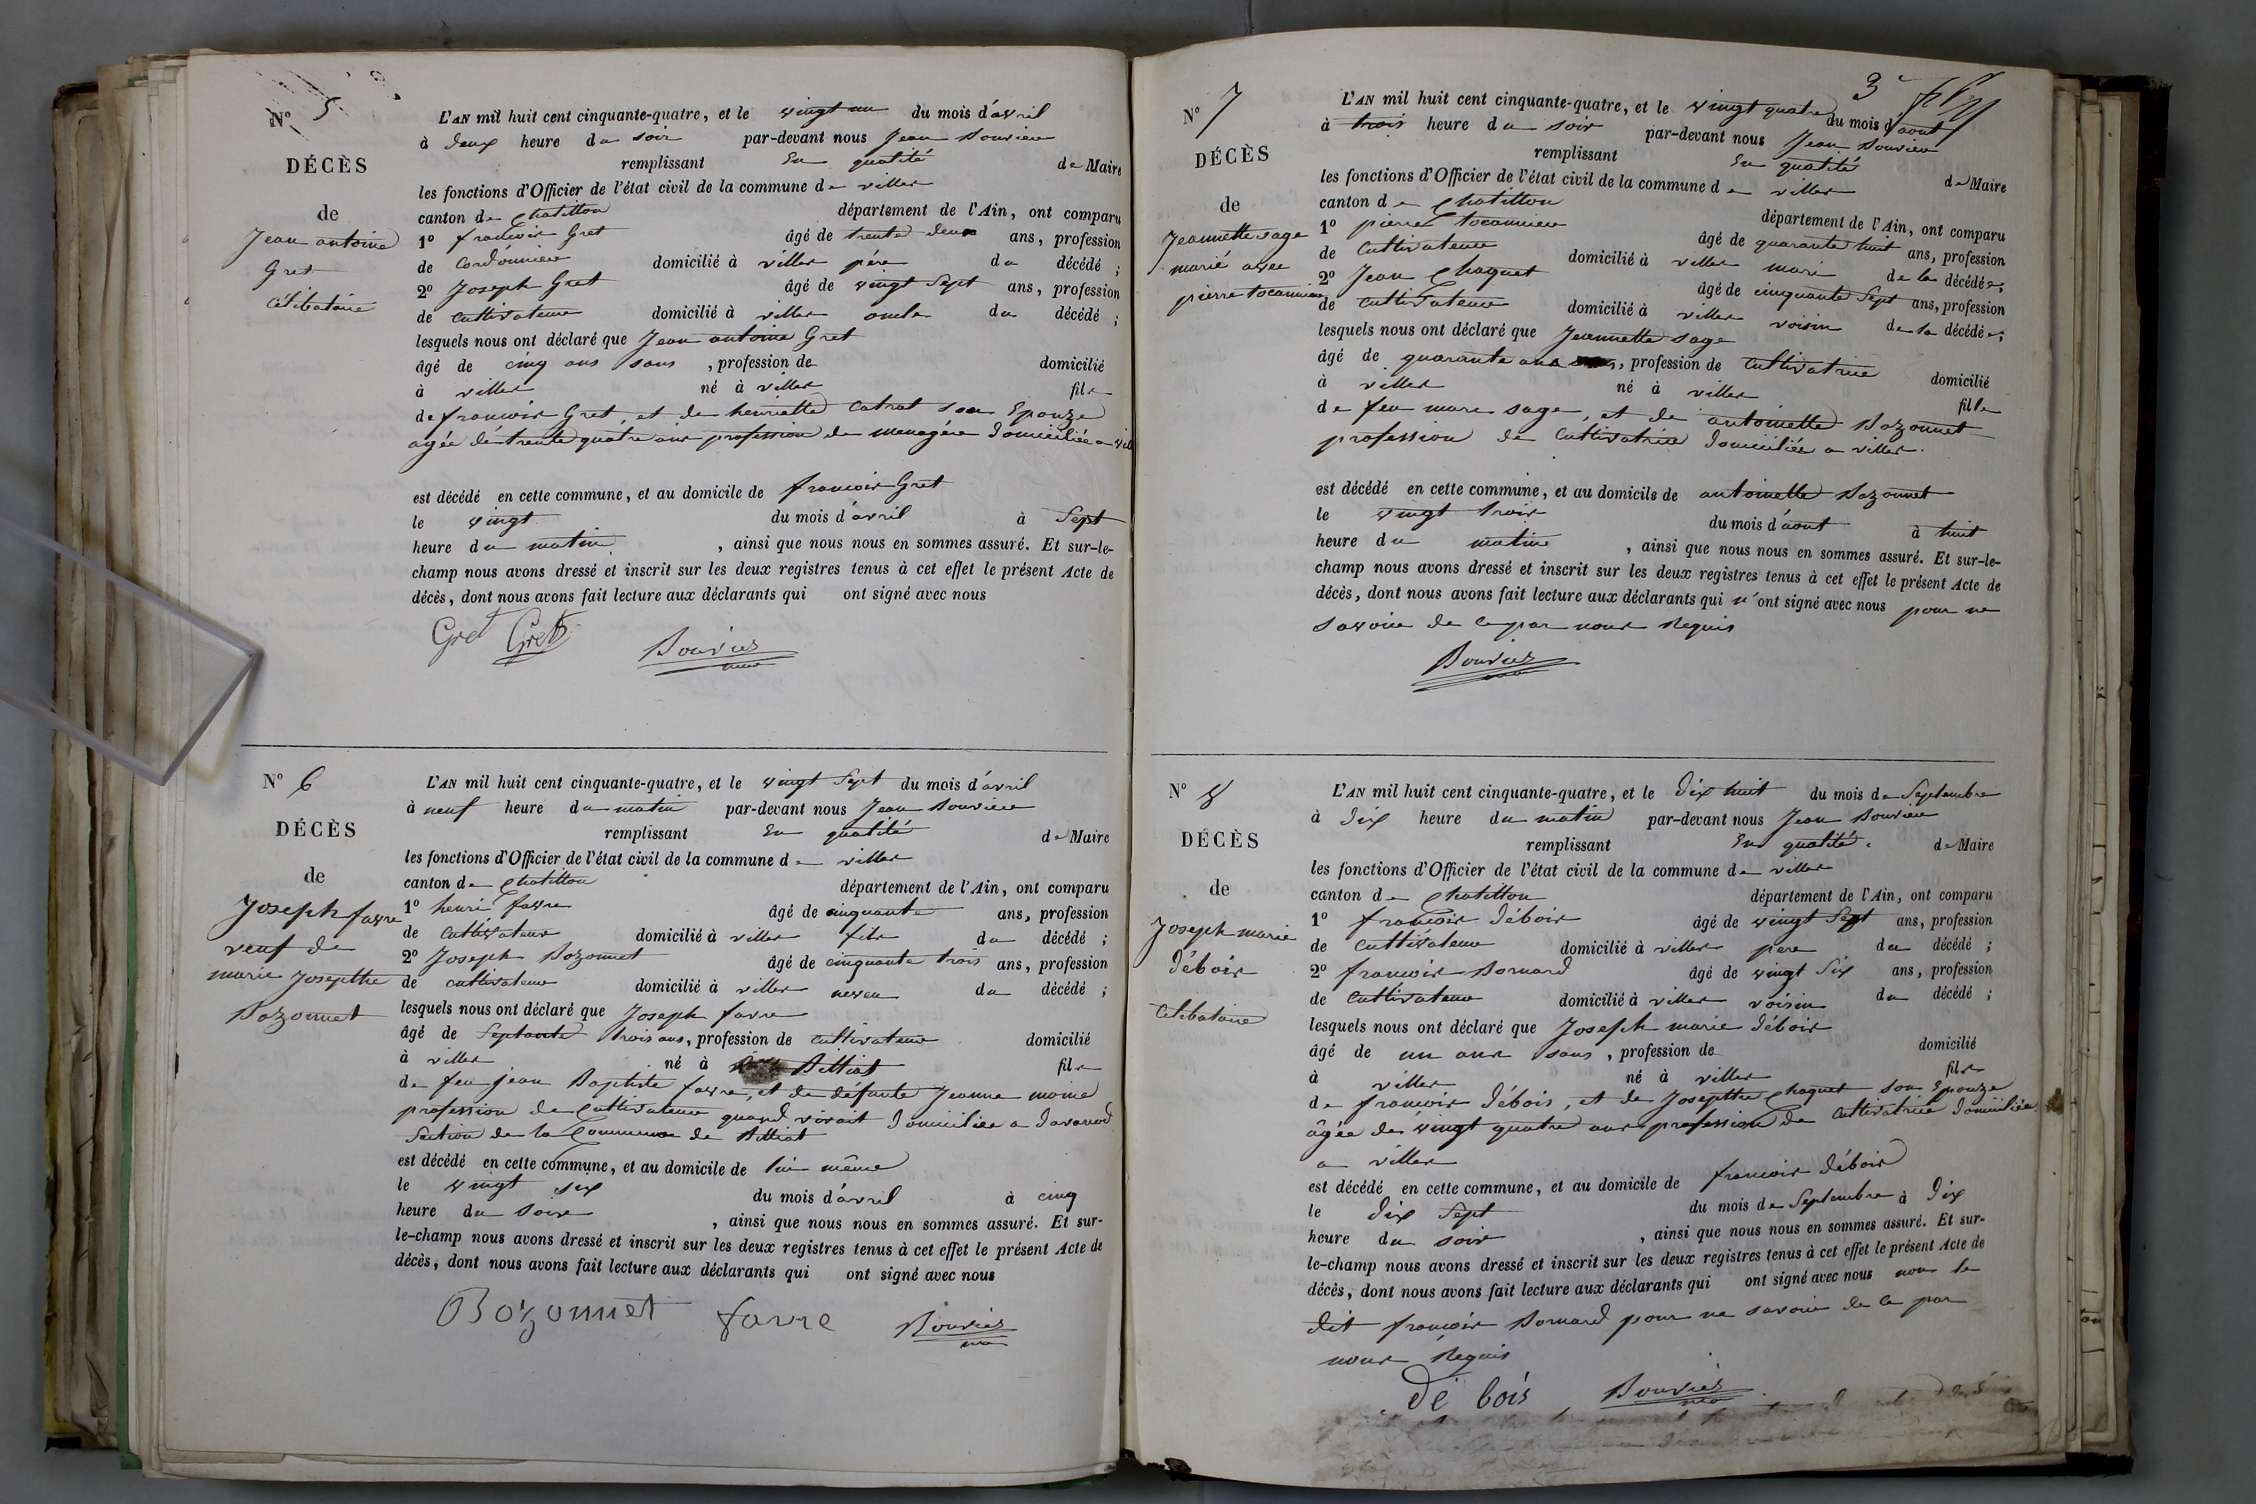 N° 5
DÉCÈS
de
Jean antoine
Gret
Célibataire
L'AN mil huit cent cinquante-quatre, et le vingt un du mois d'avril
à deux heure du soir par-devant nous Jean Bouvier
remplissant En qualité de Maire
les fonctions d'Officier de l'état civil de la commune de villes
canton de Chatillon département de l'Ain, ont comparu
1° francois Gret âgé de trente deux ans, profession
de Cordonnier domicilié à villes père du décédé ;
2° Joseph Gret âgé de vingt Sept ans, profession
de cultivateur domicilié à villes oncle du décédé ;
lesquels nous ont déclaré que Jean antoine Gret
âgé de cinq ans sans , profession de domicilié
à villes né à villes fils
de francois Gret, et de henriette Catrat son Epouze
agée de trente quatre ans profession de menagère domiciliée a
est décédé en cette commune, et au domicile de francois Gret
le vingt du mois d'avril à Sept
heure du matin , ainsi que nous nous en sommes assuré. Et sur-le-
champ nous avons dressé et inscrit sur les deux registres tenus à cet effet le présent Acte de
décès, dont nous avons fait lecture aux déclarants qui ont signé avec nous
Gret Gret Bouvier
N° 6
DÉCÈS
de
Joseph favre
veuf de
marie Josepthe
Bozonnet
L'AN mil huit cent cinquante-quatre, et le vingt Sept du mois d'avril
à neuf heure du matin par-devant nous Jean Bouvier
remplissant En qualité de Maire
les fonctions d'Officier de l'état civil de la commune de villes
canton de Chatillon département de l'Ain, ont comparu
1° henri favre âgé de cinquante ans, profession
de cultivateur domicilié à villes fils du décédé ;
2° Joseph Bozonnet âgé de cinquante trois ans, profession
de cultivateur domicilié à villes neveu du décédé ;
lesquels nous ont déclaré que Joseph favre
âgé de Septante trois ans, profession de cultivateur domicilié
à villes né à Billiat fils
de feu jean Baptiste favre, et de défunte Jeanne moine
profession de Cultivateur quand vivait domiciliée a
Section de la Commune de Billiat
est décédé en cette commune, et au domicile de lui même
le vingt six du mois d'avril à cinq
heure du soir , ainsi que nous nous en sommes assuré. Et sur-
le-champ nous avons dressé et inscrit sur les deux registres tenus à cet effet le présent Acte de
décès, dont nous avons fait lecture aux déclarants qui ont signé avec nous
Bozonnet favre Bouvier
3
N° 7
DÉCÈS
de
Jeannette sage
marié avec
pierre tocannier
L'AN mil huit cent cinquante-quatre, et le vingt quatre du mois d'aout
à trois heure du soir par-devant nous Jean Bouvier
remplissant En qualité de Maire
les fonctions d'Officier de l'état civil de la commune de villes
canton de Chatillon département de l'Ain, ont comparu
1° pierre tocannier âgé de quarante huit ans, profession
de Cultivateur domicilié à villes mari de la décédée;
2° Jean Chaquet âgé de cinquante Sept ans, profession
de cultivateur domicilié à villes voisin de la décédée;
lesquels nous ont déclaré que Jeannette sage
âgé de quarante ans , profession de Cultivatrice domicilié
à villes né à villes fille
de feu marc sage, et de antoinette Bozonnet
profession de Cultivatrice domiciliée a villes.
est décédé en cette commune, et au domicile de antoinette Bozonnet
le vingt trois du mois d'aout à huit
heure du matin , ainsi que nous nous en sommes assuré. Et sur-le-
champ nous avons dressé et inscrit sur les deux registres tenus à cet effet le présent Acte de
décès, dont nous avons fait lecture aux déclarants qui n'ont signé avec nous pour ne
savoir de ce par nous Requis
Bouvier
N° 8
DÉCÈS
de
Joseph marie
débois
Célibataire
L'AN mil huit cent cinquante-quatre, et le Dix huit du mois de Septembre
à dix heure du matin par-devant nous Jean Bouvier
remplissant En qualité de Maire
les fonctions d'Officier de l'état civil de la commune de villes
canton de Chatillon département de l'Ain, ont comparu
1° francois débois âgé de vingt Sept ans, profession
de Cultivateur domicilié à villes père du décédé ;
2° francois Bornard âgé de vingt Six ans, profession
de Cultivateur domicilié à villes voisin du décédé ;
lesquels nous ont déclaré que Joseph marie débois
âgé de un ans sans , profession de domicilié
à villes né à villes fils
de francois débois, et de Josepthe Chaquet son Epouze
âgée de vingt quatre ans profession de Cultivatrice domiciliée
a villes
est décédé en cette commune, et au domicile de francois débois
le dix Sept du mois de Septembre à Dix
heure du soir , ainsi que nous nous en sommes assuré. Et sur-
le-champ nous avons dressé et inscrit sur les deux registres tenus à cet effet le présent Acte de
décès, dont nous avons fait lecture aux déclarants qui ont signé avec nous non le
dit francois Bornard pour ne savoir de ce par
nous Requis
dé bois Bouvier